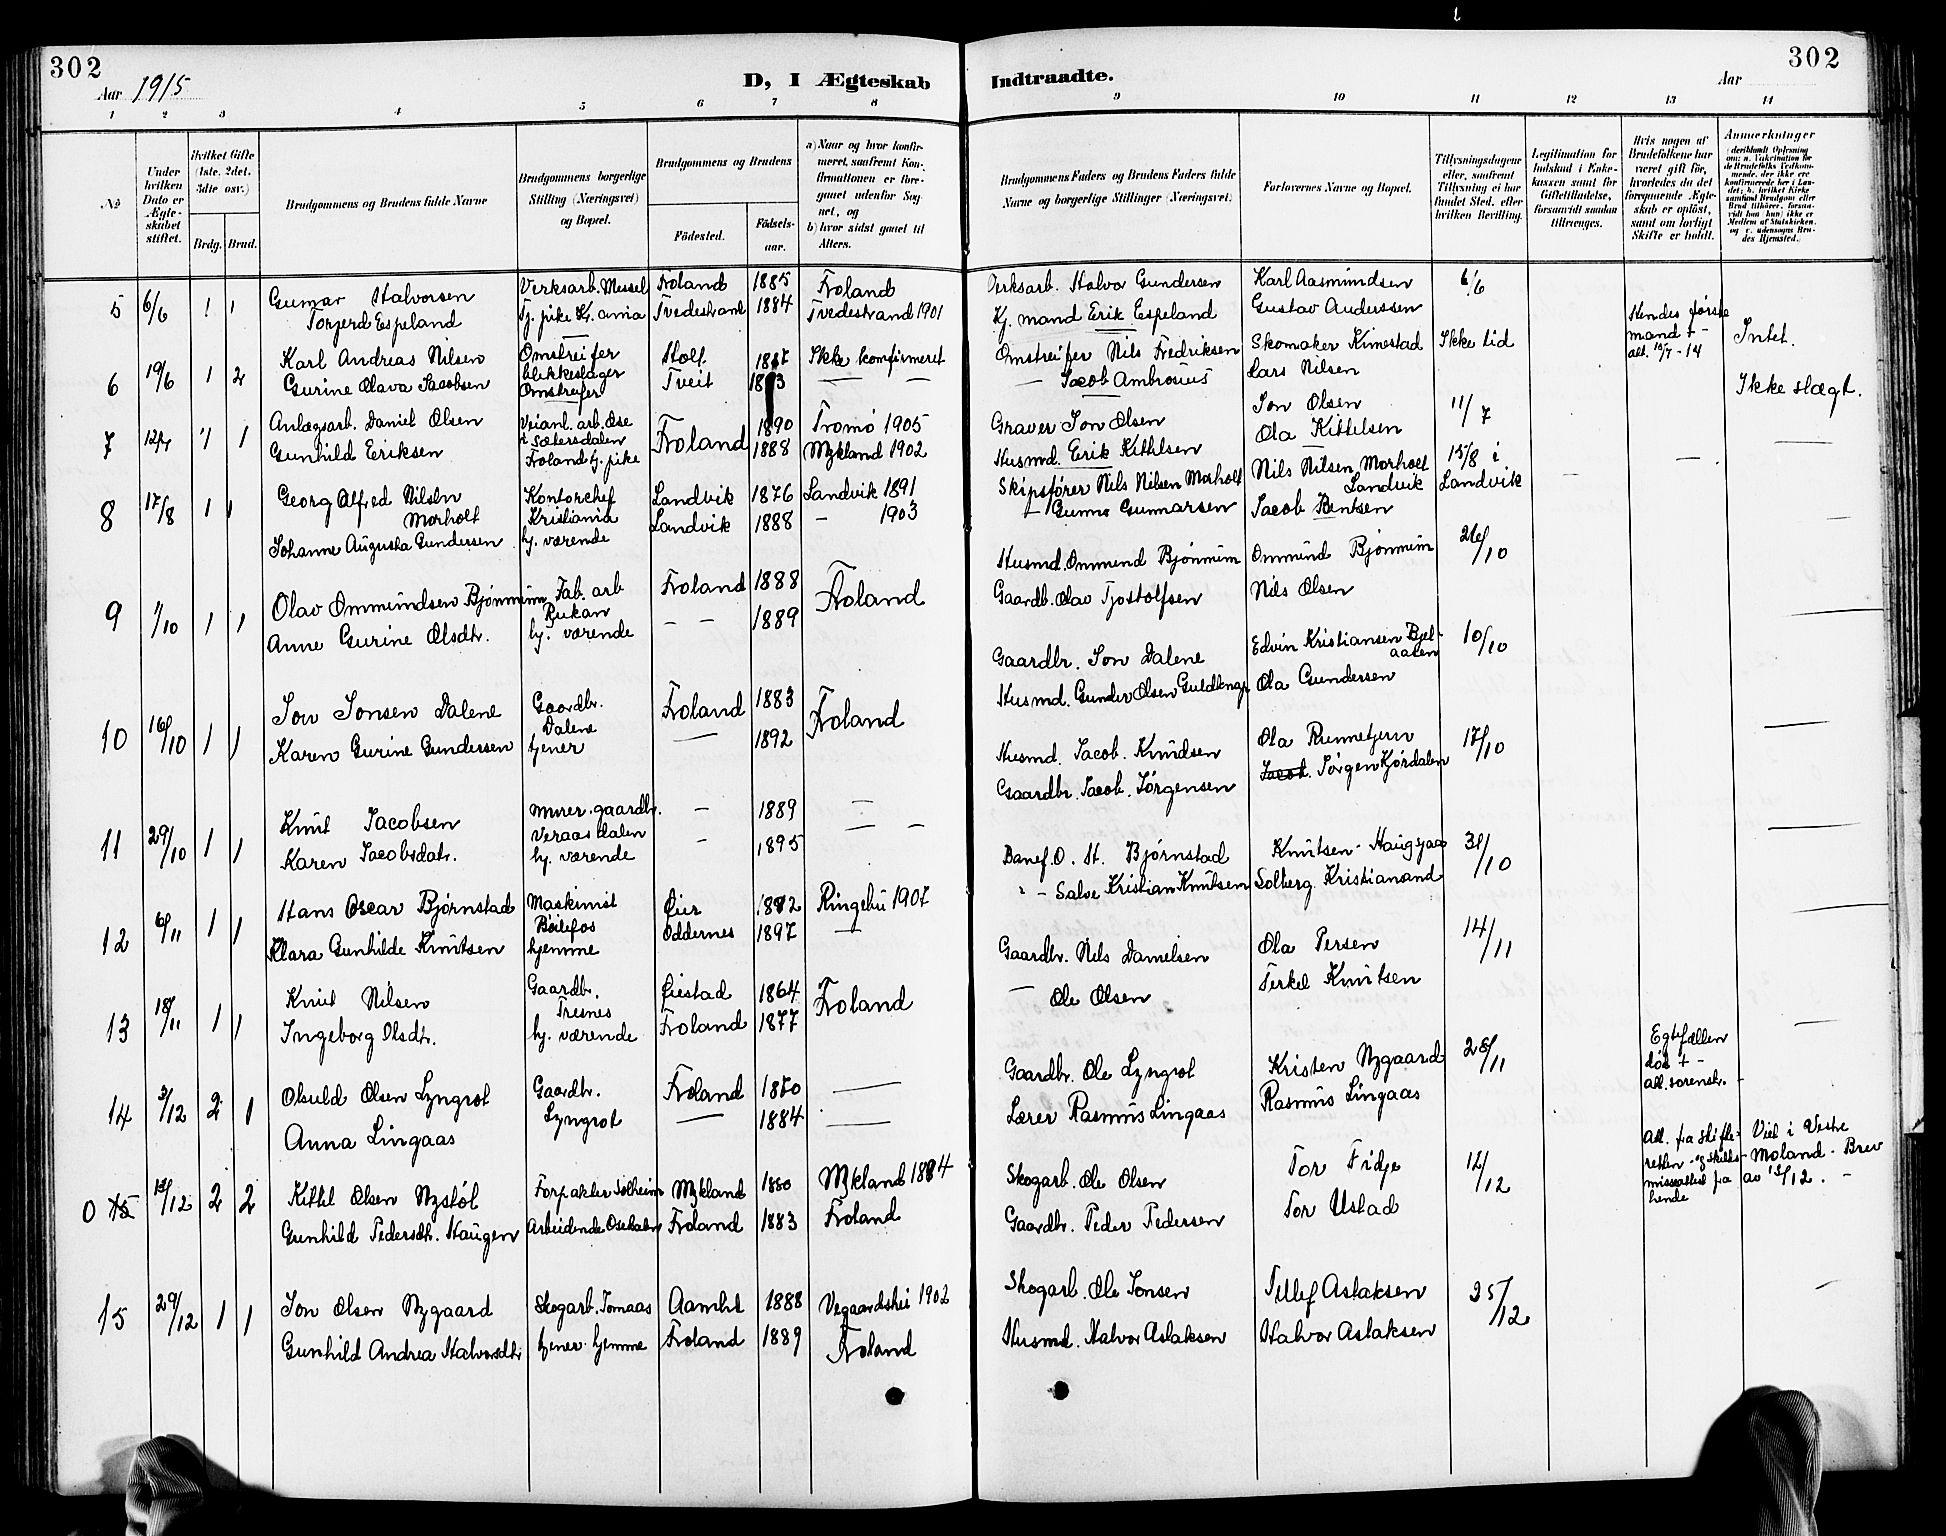 302
Aar 1915
D, I Ægteskab
1 2 3 4 5 6 7 8
No
Under hvilken Dato er Ægteskabet stiftet.
Hvilket Gifte (1ste, 2det, 3dte osv.)
Brdg. Brud.
Brudgommens og Brudens fulde Navne
Brudgommens borgerlige Stilling (Næringsvei) og Bopæl.
Brudgommens og Brudens
Födested.
Födselsaar.
a) Naar og hvor konfirmeret, saafremt Konfirmationen er foregaaet udenfor Sognet, og
b) hvor sidst gaaet til Alters.
5 6/6 1 1 Gunnar Halvorsen Verksarb. Messel Froland 1885 Froland
Torjerd Espeland Tj. pike Kr.ania Tvedestrand 1884 Tvedestrand 1901
6 19/6 1 2 Karl Andreas Nilsen Omstreifer Ikke komfirmeret
Gurine Olava Jacobsen blikkeslager Tveit — —
Omstreifer
7 1 1 Anlægsarb. Daniel Olsen Veianl. arb. Ose Froland 1890 Tromö 1905
Gunhild Eriksen i Sætersdalen 1888 Mykland 1902
Froland tj. pike
8 17/8 1 1 Georg Alfred Nilsen Kontorchef Landvik 1876 Landvik 1891
Morholt Kristiania Landvik 1888 — 1903
Johanne Augusta Gundersen hj. værende
9 1/10 1 1 Olav Ommundsen Bjønnum Fab. arb Froland 1888 Froland
Rukan
Anne Gurine Olsdtr. hj. værende — — 1889
10 16/10 1 1 Jon Jonsen Dalene Gaardbr. Froland 1883 Froland
Dalene
Karen Gurine Gundersen tjener — 1892
11 29/10 1 1 Knut Jacobsen murer. gaardbr. — 1889 —
Veraasdalen
Karen Jacobsdatr. hj. værende — 1895 — —
12 6/11 1 1 Hans Oscar Bjørnstad Maskinist Øier Ringebu 1907
Bøilefos
Klara Gunhilde Knutsen hjemme Oddernes 1897 —
13 18/11 1 1 Knut Nilsen Gaardbr. Øiestad 1864 Froland
Tresnes
Ingeborg Olsdtr. hj. værende Froland 1877
14 3/12 2 1 Osuld Olsen Lyngrot Gaardbr. Froland —
Anna Lingaas Lyngrot — 1884 —
0 15 2 2 Kittel Olsen Nystøl Forpakter Solheim Mykland 1880 Mykland
Gunhild Pedersdtr. Haugen Arbeidende Osedalen Froland 1883 Froland
15 29/12 1 1 Jon Olsen Nygaard Skogarb. Tomaas Aamli 1888 Vegaardshei 1902
Gunhild Andrea Halvorsdtr tjener hjemme Froland 1889 Froland
302
Indtraadte.
Aar
9 10 11 12 13 14
Brudgommens Faders og Brudens Faders fulde Navne og borgerlige Stillinger (Næringsvei)
Forlovernes Navne og Bopæl.
Tillysningsdagene eller, saafremt Tillysning ei har fundet Sted, efter hvilken Bevilling.
Legitimation for Indskud i Enkekassen samt for Giftetilladelse, forsaavidt saadan tiltrænges.
Hvis nogen af Brudefolkene har været gift før, hvorledes da det foregaaende Ægteskab er opløst, samt om lovligt Skifte er holdt.
Anmerkninger
Verksarb. Halvor Gundersen Karl Aasmundsen 6/6
Kj. mand Erik Espeland Gustav Anderssen
Omstreifer Nils Fredriksen Skomaker Kimestad Ikke tid Hendes første mand + - att. 15/7 - 14 Intet.
— Jacob Ambrosius Lars Nilsen
Graver Jon Olsen Jon Olsen 11/7 Ikke slægt.
Husmd. Erik Kittilsen Ola Kittelsen
Skipsfører Nils Nilsen Morholt Nils Nilsen Morholt Landvik 15/8 i Landvik — — —
— Gunne Gunnarsen Jacob Bentsen
Husmd. Ommund Bjønnum Ommund Bjønnum 26/10 —
Gaardb. Olav Tjostolfsen Nils Olsen
Gaardbr. Jon Dalene Edvin Kristiansen 10/10 —
Husmd. Gunder Olsen Guldknap Ola Gundersen
Husmd. Jacob. Knudsen Ola Runnetjern 17/10 —
Gaardbr. Jacob. Jørgensen Jacob. Jørgen Kjørdalen
Banef. O. H. Bjørnstad Knutsen - Haugsjaa 31/10 —
" - Salve Kristian Knutsen Solberg. Kristiansand
Gaardbr. Nils Danielsen Ola Persen 14/11 —
— Ole Olsen Terkel Knutsen
Gaardbr. Ole Lyngrot Kristen Nygaard 28/11 Egtefællen død + - att. sorenskr. - —
Lærer Rasmus Lingaas Rasmus Lingaas
Skogarb. Ole Olsen Tor Fidje 12/12 Att. fra skifteretten - og skilsmisseattest fra hende Viet i Vestre Moland - Brev av 13/12. -
Gaardbr. Peder Pedersen Tor Ustad
Skogarb. Ole Jonsen Tellef Aslaksen 25/12 —
Husmd. Halvor Aslaksen Halvor Aslaksen